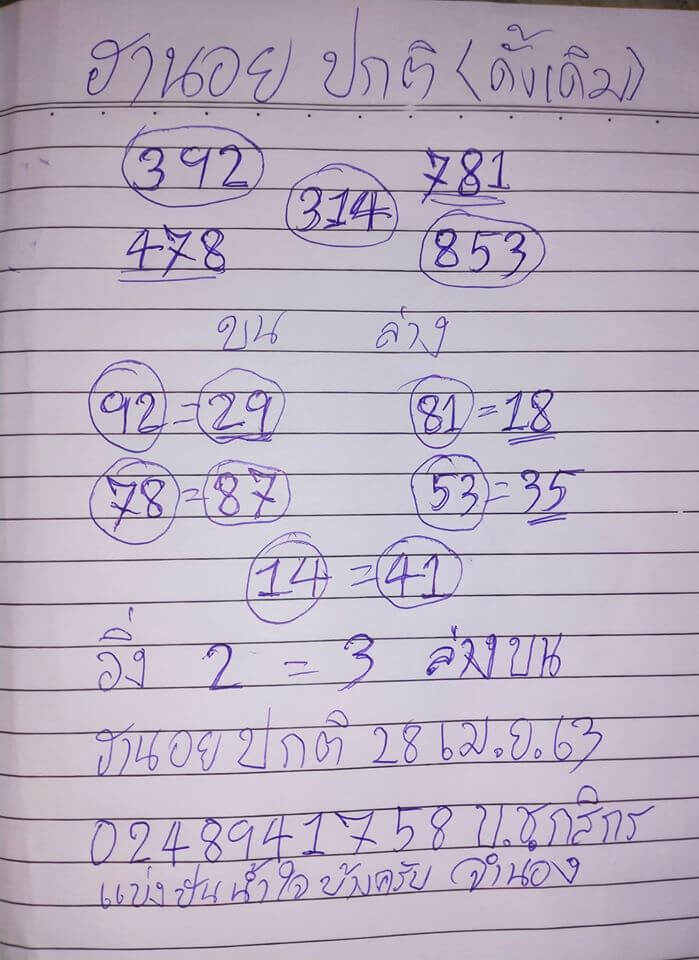 ฮานอย ปกติ (ดั้งเดิม)
392 781
314
478 853
บน ล่าง
92 = 29 81 = 18
78 = 87 53 = 35
14 = 41
วิ่ง 2 = 3 ล่างบน
ฮานอย ปกติ 28 เม.ย. 63
0248941758 บ.ชุกสิกร
แบ่งปันน้ำใจ บ้างครับ จำนอง